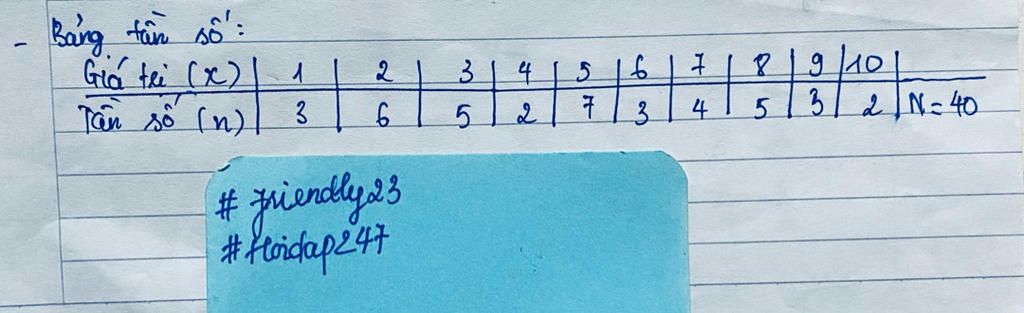 - Bảng tần số:
Giá trị (x) | 1 | 2 | 3 | 4 | 5 | 6 | 7 | 8 | 9 | 10 |
Tần số (n) | 3 | 6 | 5 | 2 | 7 | 3 | 4 | 5 | 3 | 2 | N = 40
# friendly23
# Hoidap247